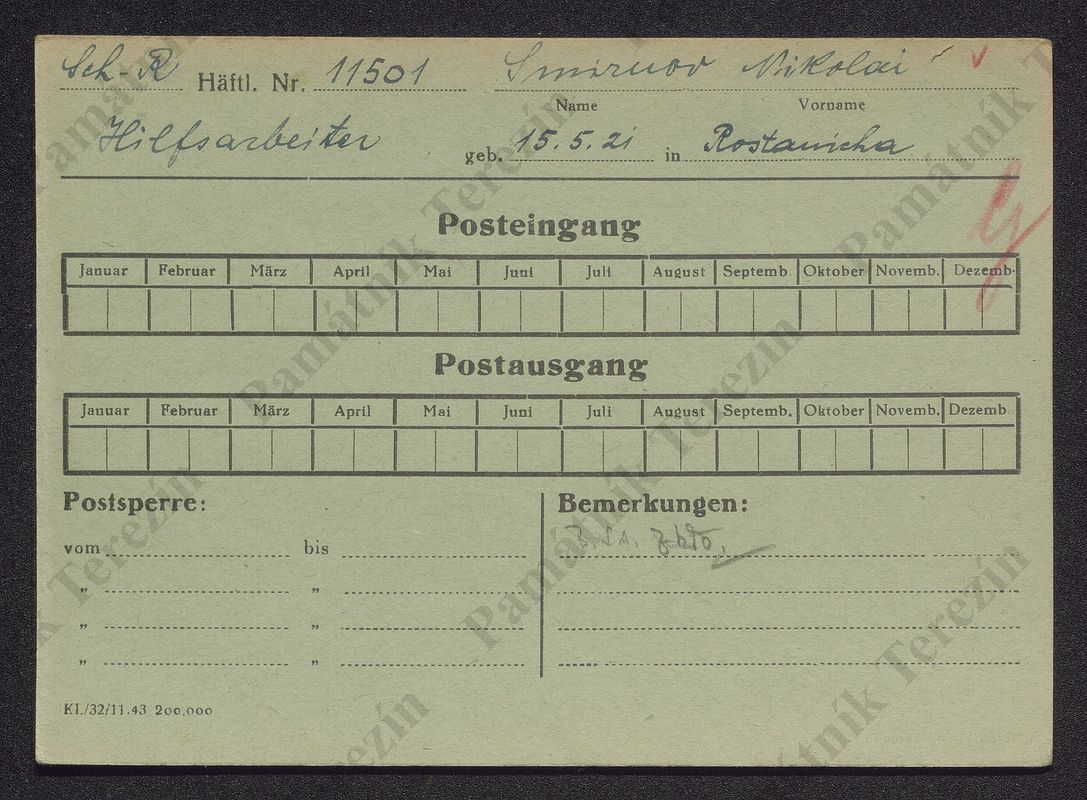 Sch-R Häftl. Nr. 11501 Smirnov Nikolai
Name Vorname
Hilfsarbeiter geb. 15.5.21 in Rostanicha
Posteingang
Januar Februar März April Mai Juni Juli August Septemb. Oktober Novemb. Dezemb.
Postausgang
Januar Februar März April Mai Juni Juli August Septemb. Oktober Novemb. Dezemb.
Postsperre: Bemerkungen:
vom bis
" "
" "
" "
KL/32/11.43 200,000
Památník Terezín